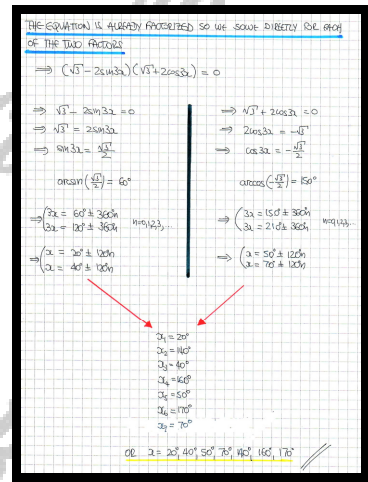 THE EQUATION IS ALREADY FACTORIZED SO WE SOLVE DIRECTLY FOR EACH
OF THE TWO FACTORS
⇒ (√3 - 2sin3x)(√3 + 2cos3x) = 0
⇒ √3 - 2sin3x = 0
⇒ √3 = 2sin3x
⇒ sin3x = √3/2
arcsin(√3/2) = 60°
⇒ (3x = 60° ± 360°n
(3x = 120° ± 360°n n=0,1,2,3,...
⇒ (x = 20° ± 120°n
(x = 40° ± 120°n
⇒ √3 + 2cos3x = 0
⇒ 2cos3x = -√3
⇒ cos3x = -√3/2
arccos(-√3/2) = 150°
⇒ (3x = 150° ± 360°n
(3x = 210° ± 360°n n=0,1,2,3,...
⇒ (x = 50° ± 120°n
(x = 70° ± 120°n
x₁ = 20°
x₂ = 140°
x₃ = 40°
x₄ = 160°
x₅ = 50°
x₆ = 170°
x₇ = 70°
OR x = 20°, 40°, 50°, 70°, 140°, 160°, 170°